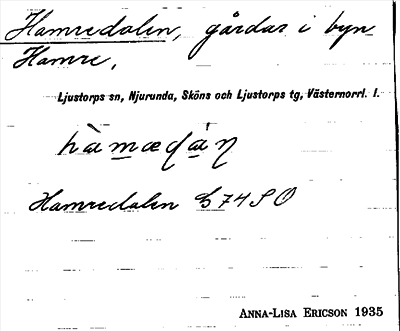 Hamredalen, gårdar i byn
Hamre.
Ljustorps sn, Njurunda, Sköns och Ljustorps tg, Västernorrl. l.
Hamredalen G 74 S O
ANNA-LISA ERICSON 1935